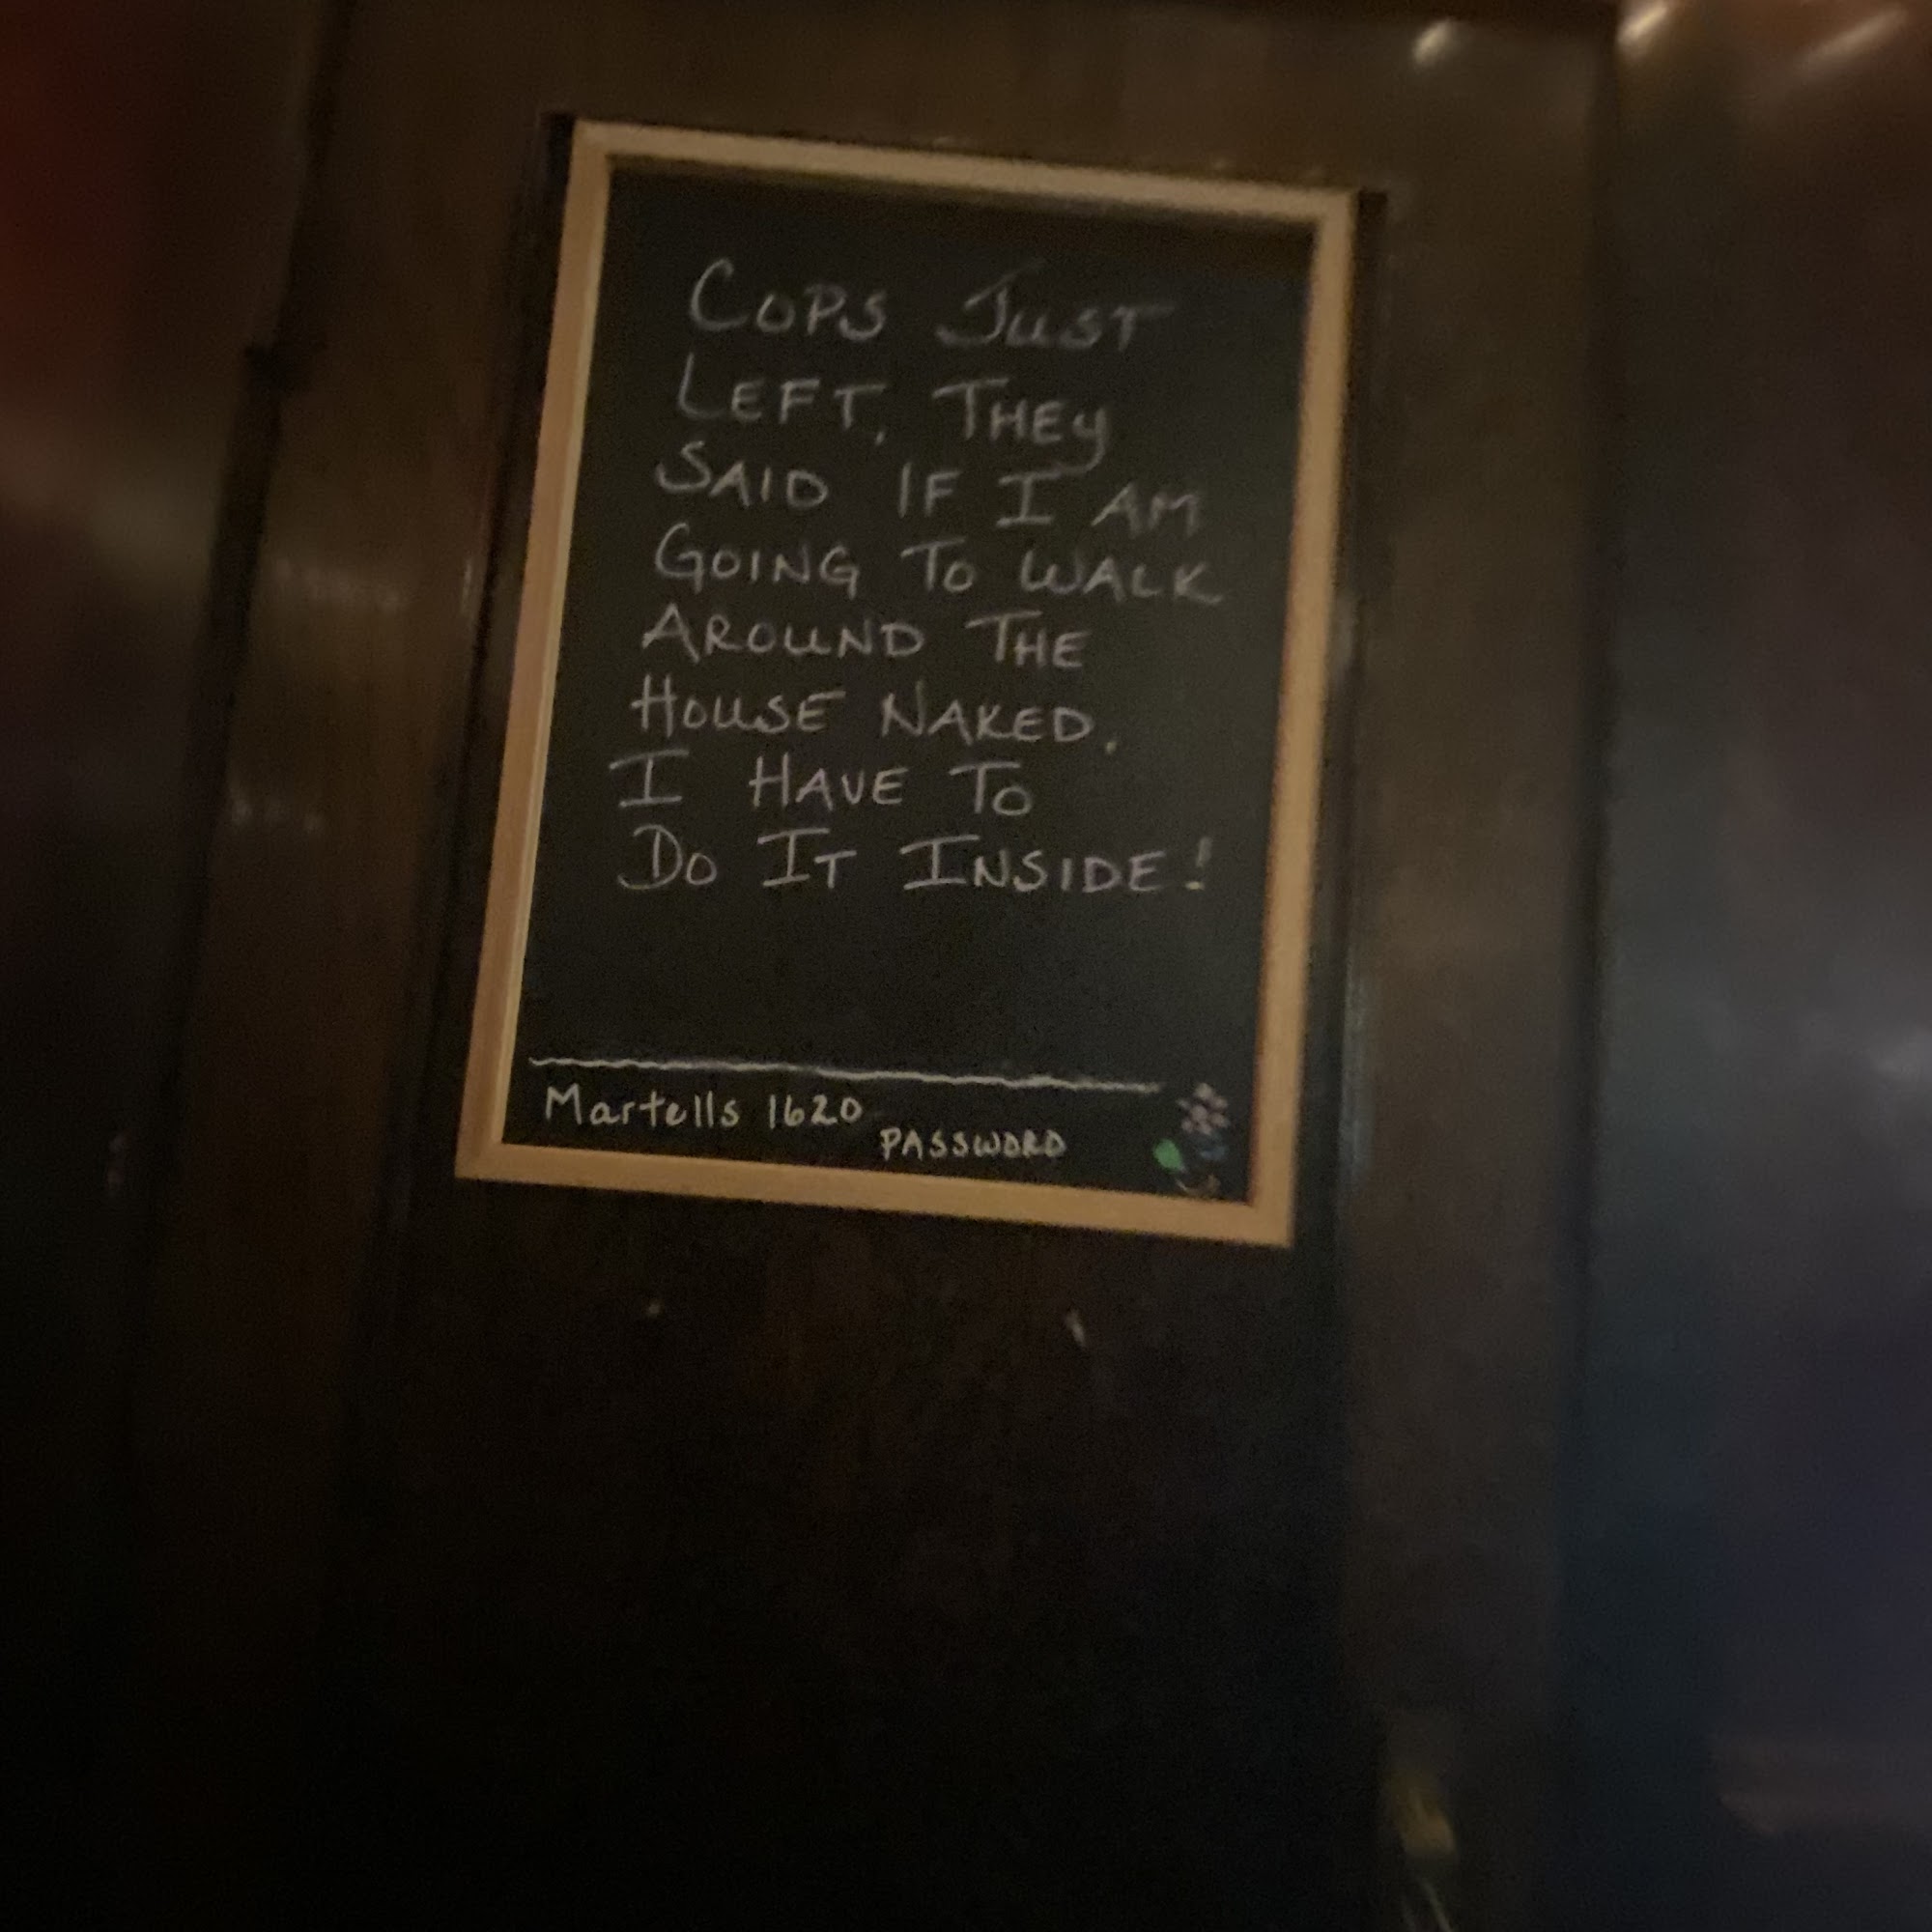 COPS JUST
LEFT, THEY
SAID IF I AM
GOING TO WALK
AROUND THE
HOUSE NAKED.
I HAVE TO
DO IT INSIDE!
Martells 1620
PASSWORD